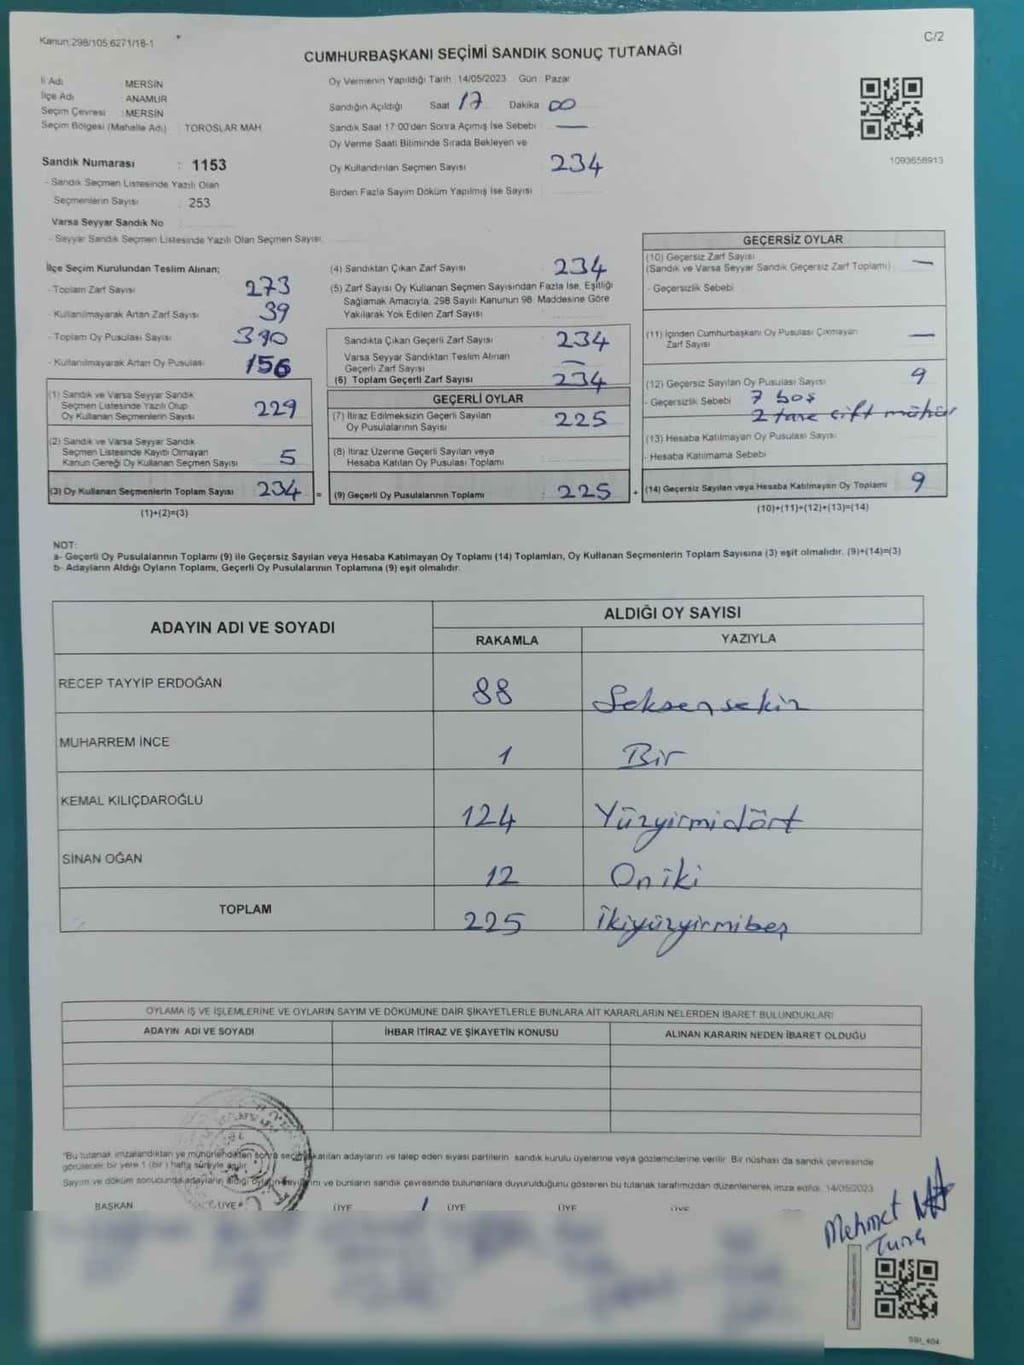 Kanun:298/105;6271/18-1
C/2
CUMHURBAŞKANI SEÇİMİ SANDIK SONUÇ TUTANAĞI
İl Adı MERSİN
İlçe Adı ANAMUR
Seçim Çevresi : MERSİN
Seçim Bölgesi (Mahalle Adı) TOROSLAR MAH
Sandık Numarası : 1153
- Sandık Seçmen Listesinde Yazılı Olan
Seçmenlerin Sayısı 253
Varsa Seyyar Sandık No
- Seyyar Sandık Seçmen Listesinde Yazılı Olan Seçmen Sayısı
Oy Vermenin Yapıldığı Tarih 14/05/2023 Gün : Pazar
Sandığın Açıldığı Saat 17 Dakika 00
Sandık Saat 17:00'den Sonra Açılmış İse Sebebi —
Oy Verme Saati Bitiminde Sırada Bekleyen ve
Oy Kullandırılan Seçmen Sayısı 234
Birden Fazla Sayım Döküm Yapılmış İse Sayısı
1093658913
İlçe Seçim Kurulundan Teslim Alınan;
- Toplam Zarf Sayısı 273
- Kullanılmayarak Artan Zarf Sayısı 39
- Toplam Oy Pusulası Sayısı 390
- Kullanılmayarak Artan Oy Pusulası 156
(1) Sandık ve Varsa Seyyar Sandık
Seçmen Listesinde Yazılı Olup
Oy Kullanan Seçmenlerin Sayısı 229
(2) Sandık ve Varsa Seyyar Sandık
Seçmen Listesinde Kayıtlı Olmayan
Kanun Gereği Oy Kullanan Seçmen Sayısı 5
(3) Oy Kullanan Seçmenlerin Toplam Sayısı 234 =
(1)+(2)=(3)
(4) Sandıktan Çıkan Zarf Sayısı 234
(5) Zarf Sayısı Oy Kullanan Seçmen Sayısından Fazla İse, Eşitliği
Sağlamak Amacıyla, 298 Sayılı Kanunun 98. Maddesine Göre
Yakılarak Yok Edilen Zarf Sayısı
Sandıkta Çıkan Geçerli Zarf Sayısı 234
Varsa Seyyar Sandıktan Teslim Alınan
Geçerli Zarf Sayısı —
(6) Toplam Geçerli Zarf Sayısı 234
GEÇERLİ OYLAR
(7) İtiraz Edilmeksizin Geçerli Sayılan
Oy Pusulalarının Sayısı 225
(8) İtiraz Üzerine Geçerli Sayılan veya
Hesaba Katılan Oy Pusulası Toplamı
(9) Geçerli Oy Pusulalarının Toplamı : 225 +
GEÇERSİZ OYLAR
(10) Geçersiz Zarf Sayısı
(Sandık ve Varsa Seyyar Sandık Geçersiz Zarf Toplamı) —
- Geçersizlik Sebebi
(11) İçinden Cumhurbaşkanı Oy Pusulası Çıkmayan
Zarf Sayısı —
(12) Geçersiz Sayılan Oy Pusulası Sayısı 9
- Geçersizlik Sebebi 7 boş
2 tane çift mühür
(13) Hesaba Katılmayan Oy Pusulası Sayısı
- Hesaba Katılmama Sebebi
(14) Geçersiz Sayılan veya Hesaba Katılmayan Oy Toplamı 9
(10)+(11)+(12)+(13)=(14)
NOT:
a- Geçerli Oy Pusulalarının Toplamı (9) ile Geçersiz Sayılan veya Hesaba Katılmayan Oy Toplamı (14) Toplamları, Oy Kullanan Seçmenlerin Toplam Sayısına (3) eşit olmalıdır. (9)+(14)=(3)
b- Adayların Aldığı Oyların Toplamı, Geçerli Oy Pusulalarının Toplamına (9) eşit olmalıdır.
ADAYIN ADI VE SOYADI
ALDIĞI OY SAYISI
RAKAMLA YAZIYLA
RECEP TAYYİP ERDOĞAN 88 Seksensekiz
MUHARREM İNCE 1 Bir
KEMAL KILIÇDAROĞLU 124 Yüzyirmidört
SİNAN OĞAN 12 Oniki
TOPLAM 225 İkiyüzyirmibeş
OYLAMA İŞ VE İŞLEMLERİNE VE OYLARIN SAYIM VE DÖKÜMÜNE DAİR ŞİKAYETLERLE BUNLARA AİT KARARLARIN NELERDEN İBARET BULUNDUKLARI
ADAYIN ADI VE SOYADI İHBAR İTİRAZ VE ŞİKAYETİN KONUSU ALINAN KARARIN NEDEN İBARET OLDUĞU
"Bu tutanak imzalandıktan ve mühürlendikten sonra seçime katılan adayların ve talep eden siyasi partilerin sandık kurulu üyelerine veya gözlemcilerine verilir. Bir nüshası da sandık çevresinde
görülecek bir yere 1 (bir) hafta süreyle asılır.
Sayım ve döküm sonucunda adayların aldığı oyların sayılarını ve bunların sandık çevresinde bulunanlara duyurulduğunu gösteren bu tutanak tarafımızdan düzenlenerek imza edildi. 14/05/2023
BAŞKAN ÜYE ÜYE ÜYE ÜYE ÜYE
Mehmet
Tuna
SSI_404